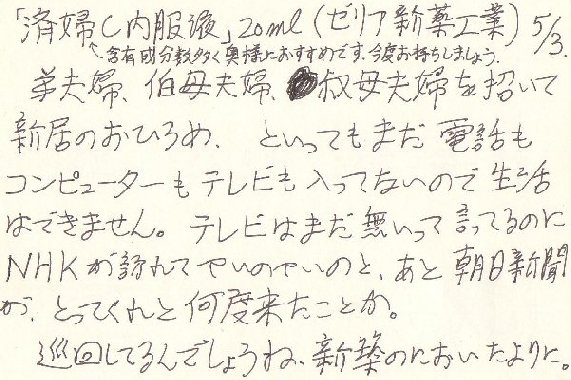 「済婦C内服液」20ml(ゼリア新薬工業) 5/3.
含有成分数多く奥様におすすめです。今度お持ちしましょう。
弟夫婦、伯母夫婦、叔母夫婦を招いて
新居のおひろめ、といってもまだ電話も
コンピューターもテレビも入ってないので生活
はできません。テレビはまだ無いって言ってるのに
NHKが訪れてやいのやいのと、あと朝日新聞
が、とってくれと何度来たことか。
巡回してるんでしょうね、新築のにおいたよりに。